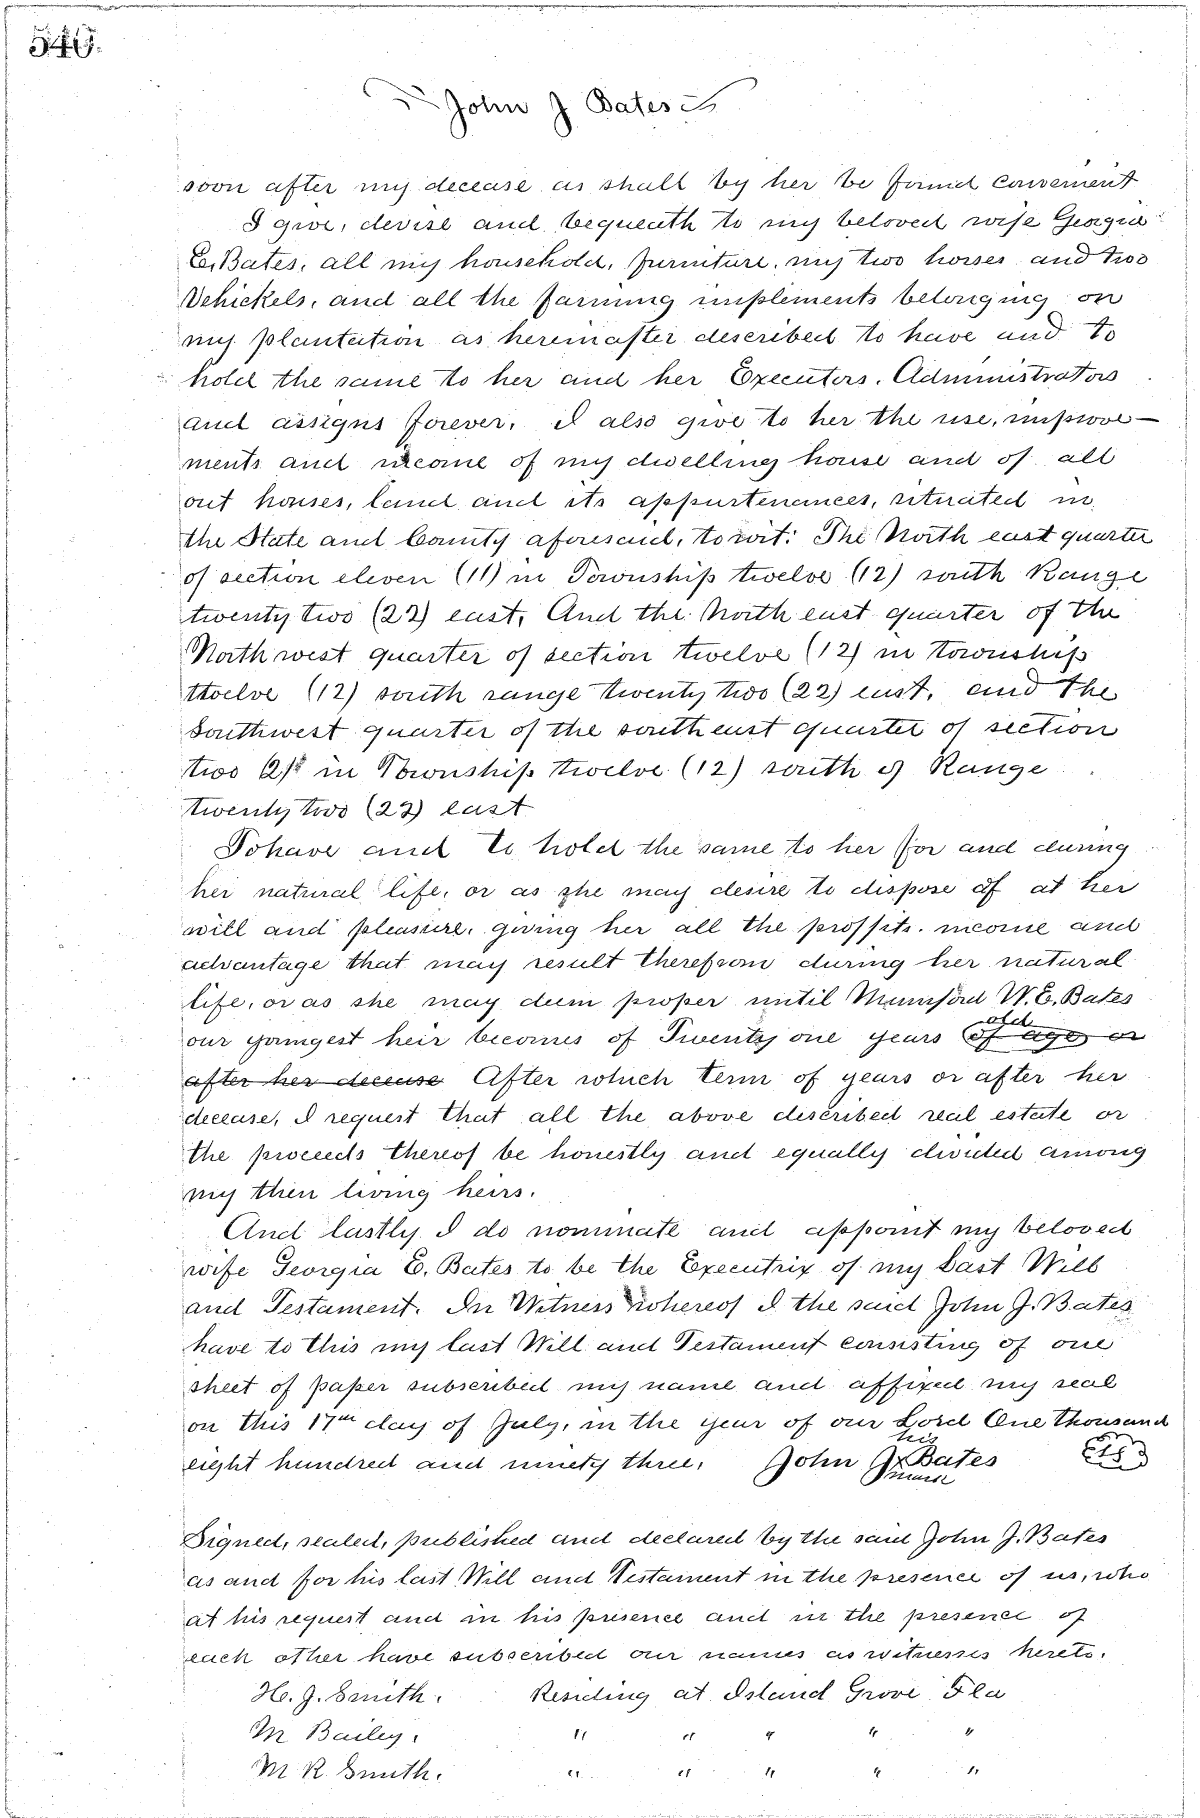 546.
John J Bates
soon after my decease as shall by her be found convenient
I give, devise and bequeath to my beloved wife Georgia
E. Bates, all my household, furniture, my two horses and two
Vehickels, and all the farming implements belonging on
my plantation as hereinafter described to have and to
hold the same to her and her Executors, Administrators
and assigns forever. I also give to her the use, improve-
ments and income of my dwelling house and of all
out houses, land and its appurtenances, situated in
the State and County aforesaid, to wit: The North east quarter
of section eleven (11) in Township twelve (12) south Range
twenty two (22) east, And the North east quarter of the
North west quarter of section twelve (12) in township
twelve (12) south range twenty two (22) east, and the
Southwest quarter of the south east quarter of section
two (2) in Township twelve (12) south of Range
twenty two (22) east
To have and to hold the same to her for and during
her natural life, or as she may desire to dispose of at her
will and pleasure, giving her all the proffits, income and
advantage that may result therefrom during her natural
life, or as she may deem proper until Mumford W. E. Bates
our youngest heir becomes of Twenty one years old of age or
after her decease After which term of years or after her
decease, I request that all the above described real estate or
the proceeds thereof be honestly and equally divided among
my then living heirs.
And lastly I do nominate and appoint my beloved
wife Georgia E. Bates to be the Executrix of my Last Will
and Testament. In Witness whereof I the said John J. Bates
have to this my last Will and Testament consisting of one
sheet of paper subscribed my name and affixed my seal
on this 17th day of July, in the year of our Lord One thousand
eight hundred and ninety three. John J. his x mark Bates LS
Signed, sealed, published and declared by the said John J. Bates
as and for his last Will and Testament in the presence of us, who
at his request and in his presence and in the presence of
each other have subscribed our names as witnesses hereto.
H. J. Smith. Residing at Island Grove Fla
M Bailey. " " " " "
M R Smith. " " " " "